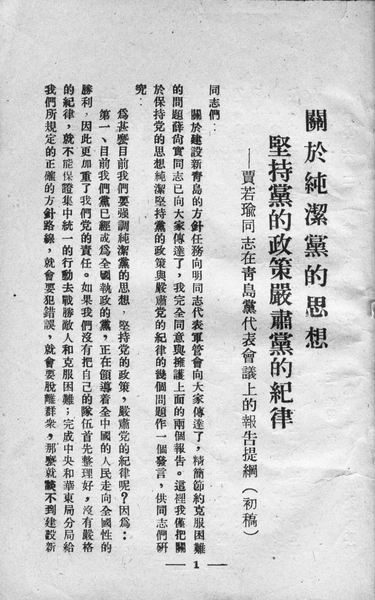 關於純潔黨的思想
堅持黨的政策嚴肅黨的紀律
——賈若瑜同志在青島黨代表會議上的報告提綱（初稿）
同志們：
關於建設新青島的方針任務向明同志代表軍管會向大家傳達了，精簡節約克服困難
的問題薛尚實同志已向大家傳達了，我完全同意與擁護上面的兩個報告。這裡我僅把關
於保持党的思想純潔堅持黨的政策與嚴肅党的紀律的幾個問題作一個發言，供同志們研
究：
為甚麼目前我們要强調純潔黨的思想，堅持党的政策，嚴肅党的紀律呢？因為：
第一、目前我們黨已經成為全國執政的黨，正在領導着全中國的人民走向全國性的
勝利，因此更加重了我們党的責任。如果我們沒有把自己的隊伍首先整理好，沒有嚴格
的紀律，就不能保證集中統一的行動去戰勝敵人和克服困難；完成中央和華東局分局給
我們所規定的正確的方針路線，就會要犯錯誤，就會要脫離群衆，那麼就談不到建設新
— 1 —